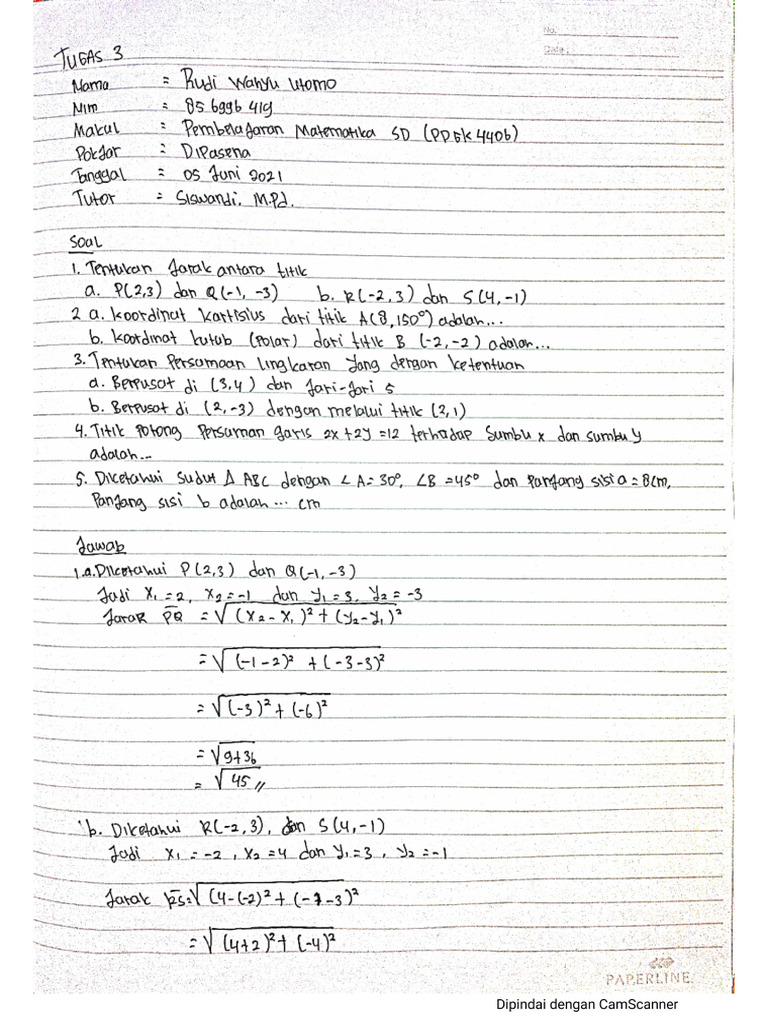 No.
Date:
TUGAS 3
Nama : Rudi Wahyu Utomo
Nim : 856996419
Makul : Pembelajaran Matematika SD (PDGK 4406)
Pokjar : Dipasena
Tanggal : 05 Juni 2021
Tutor : Siswandi, M.Pd.
Soal
1. Tentukan Jarak antara titik
a. P(2,3) dan Q(-1, -3) b. R(-2,3) dan S(4,-1)
2 a. Koordinat Kartisius dari titik A(8,150°) adalah...
b. Koordinat kutub (Polar) dari titik B (-2,-2) adalah...
3. Tentukan Persamaan lingkaran yang dengan ketentuan
a. Berpusat di (3,4) dan Jari-Jari 5
b. Berpusat di (2,-3) dengan melalui titik (2,1)
4. Titik Potong Persaman garis 2x+2y=12 terhadap Sumbu x dan sumbu y
adalah...
5. Diketahui Sudut Δ ABC dengan ∠A=30°, ∠B=45° dan Panjang sisi a = 8cm,
Panjang sisi b adalah ... cm
Jawab
1.a. Diketahui P(2,3) dan Q(-1,-3)
Jadi x₁=2, x₂=-1 dan y₁=3, y₂=-3
Jarak PQ = √(x₂-x₁)²+(y₂-y₁)²
= √(-1-2)²+(-3-3)²
= √(-3)²+(-6)²
= √9+36
= √45 //
b. Diketahui R(-2,3), dan S(4,-1)
Jadi x₁=-2, x₂=4 dan y₁=3, y₂=-1
Jarak RS=√(4-(-2)²+(-1-3)²
= √(4+2)²+(-4)²
PAPERLINE
Dipindai dengan CamScanner